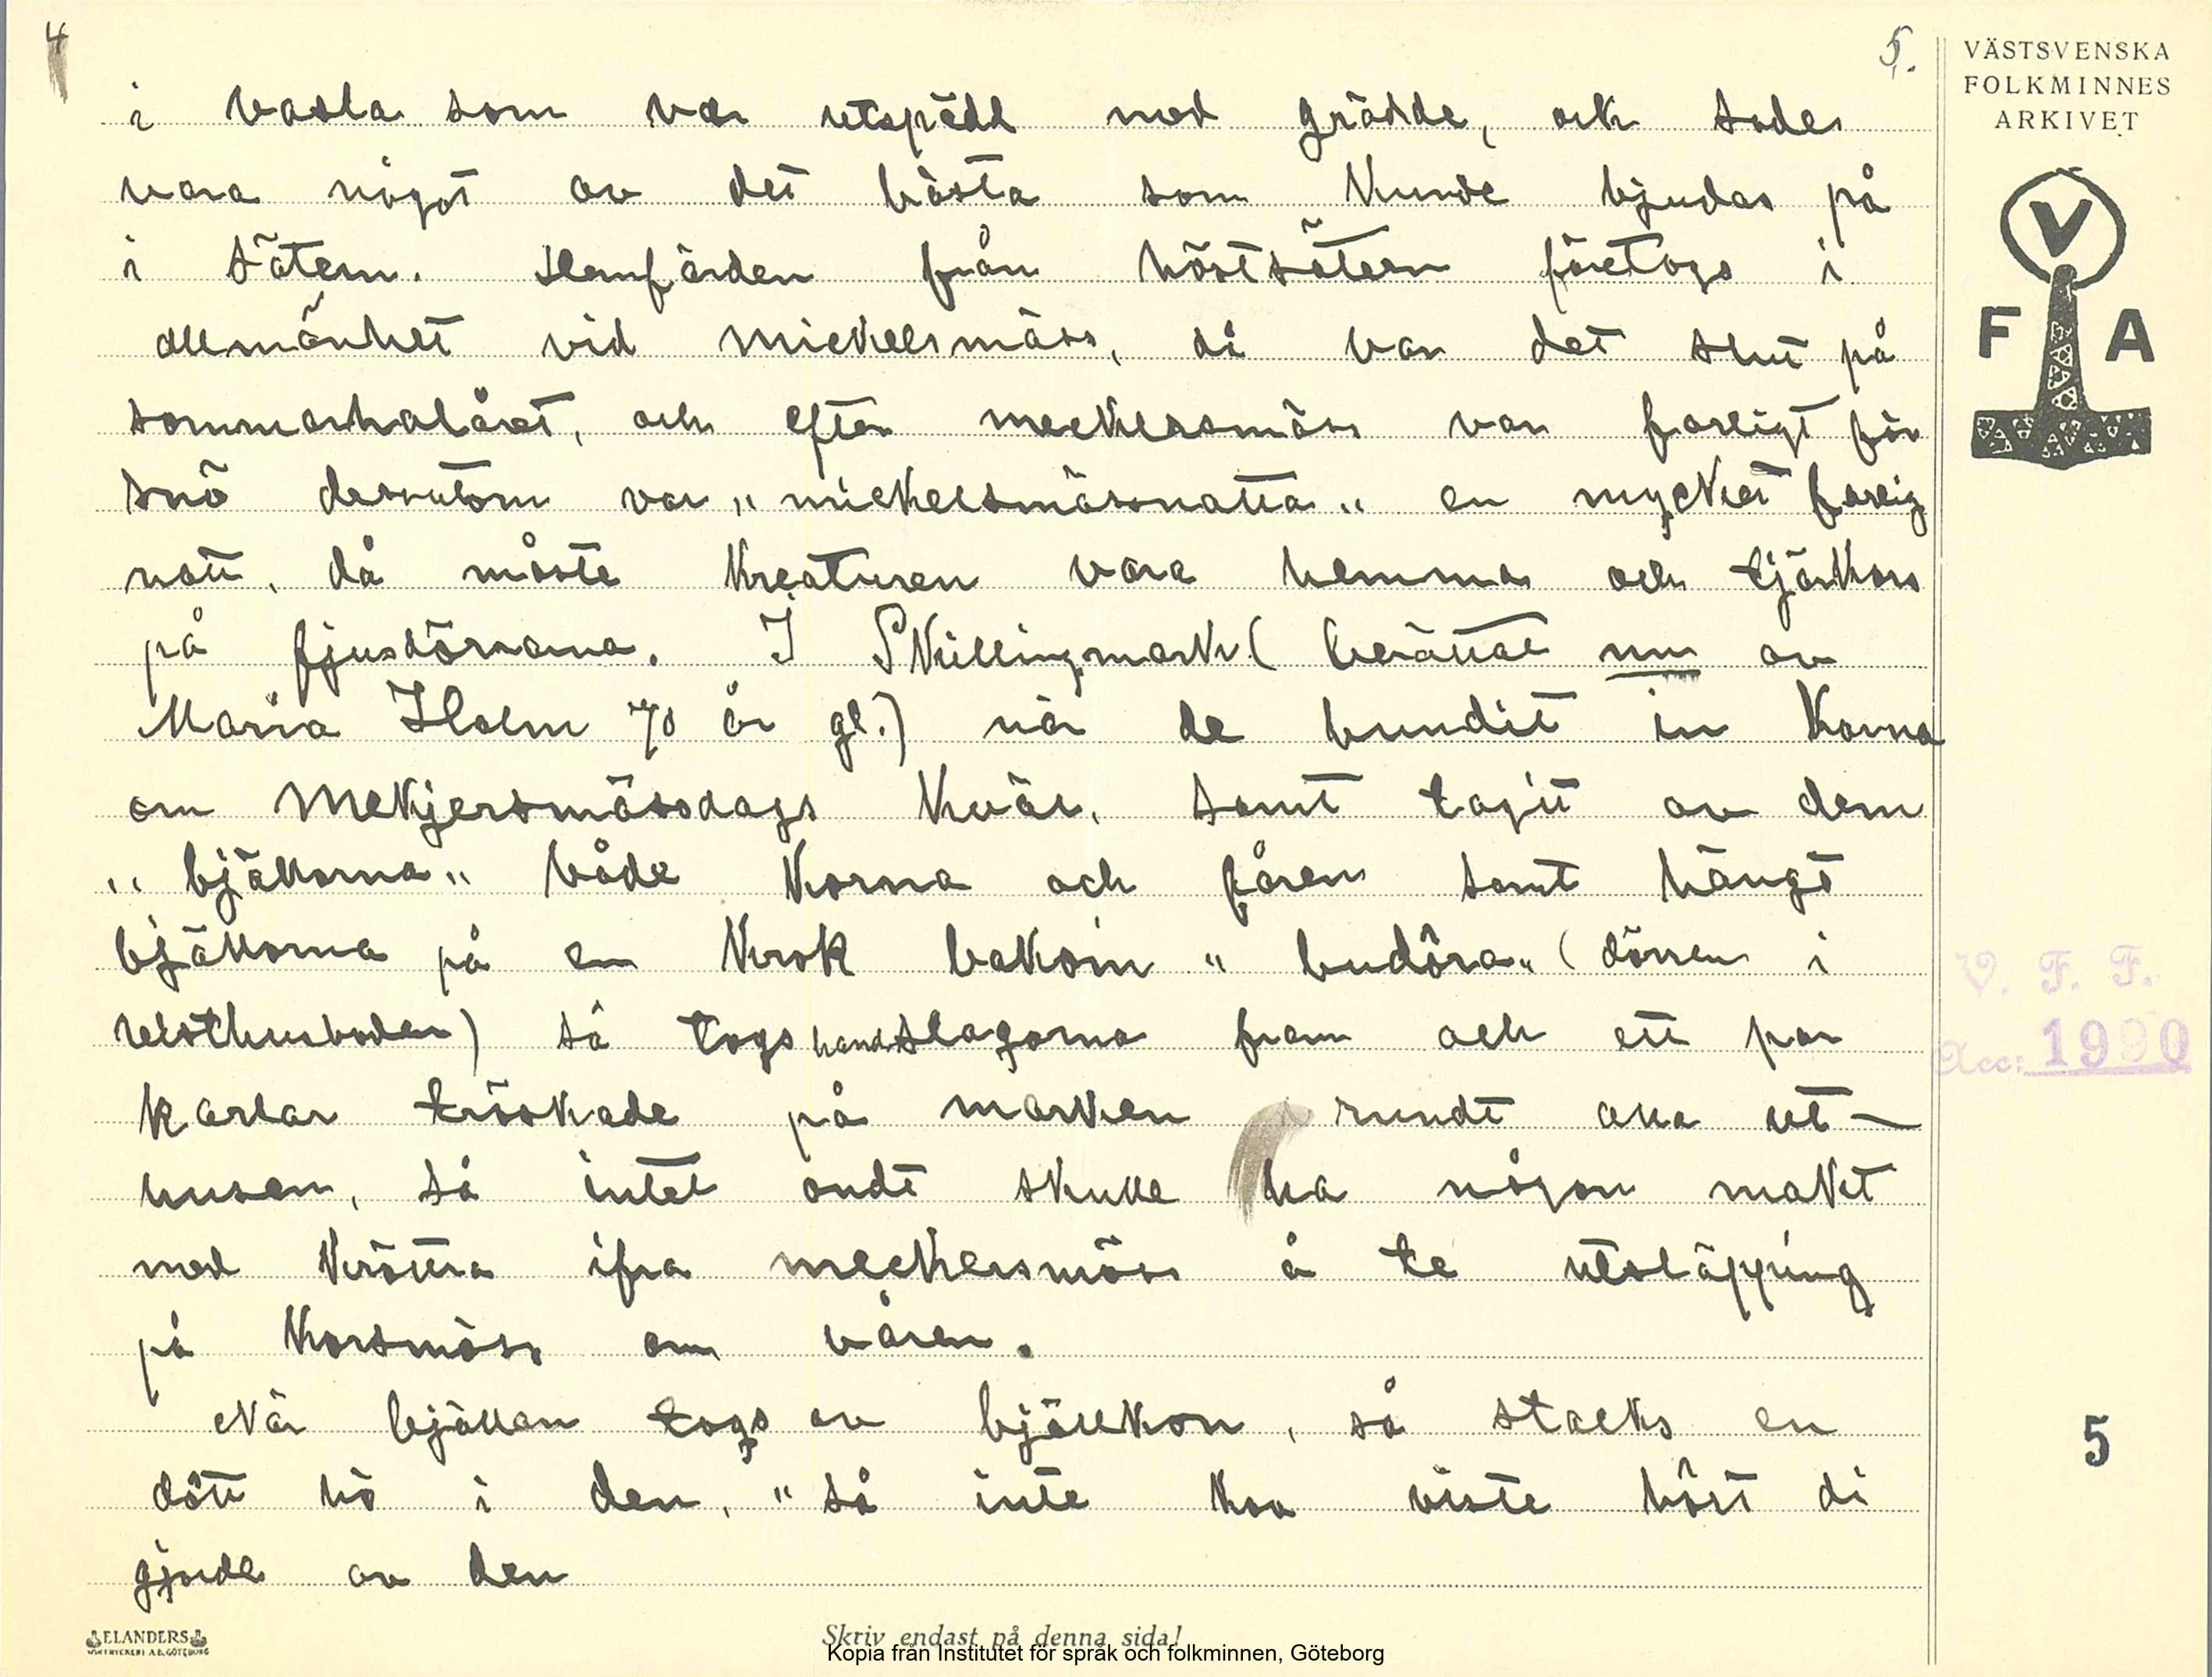 4
5.
VÄSTSVENSKA
FOLKMINNES
ARKIVET
V
F A
i vasla som var utspädd med grädde, ock sades
vara något av det bästa som kunde bjudas på
i sätern. Hemfärden från höstsätern företogs i
allmänhet vid Mickelsmäss, då var det slut på
sommarhalåret, och efter meckersmäss var farligt för
snö dessutom var "mickelsmässnatta" en mycket farlig
natt, då måste kreaturen vara hemma och tjärkors
på fjusdörrarna. I Skillingmark (berättat nu av
Maria Holm 70 år gl.) när de bundit in korna
om Mekjersmässdags kväl, samt tagit av dem
"bjällorna" både korna och fåren samt hängt
bjällorna på en krok bakom "budôra" (dörren i
visthusboden) så togs handslagorna fram och ett par
karlar tröskade på marken rundt alla ut-
husen, så intet ondt skulle ha någon makt
med kröttra ifra meckersmäss å te utsläpping
på Korsmäss om våren.
När bjällan togs av bjällkon, så stacks en
dött hö i den, "så inte koa viste hôst di
gjorde av den
V. F. F.
Acc: 1990
5
ELANDERS
BOKTRYCKERI A.B. GÖTEBORG
Skriv endast på denna sida!
Kopia från Institutet för språk och folkminnen, Göteborg